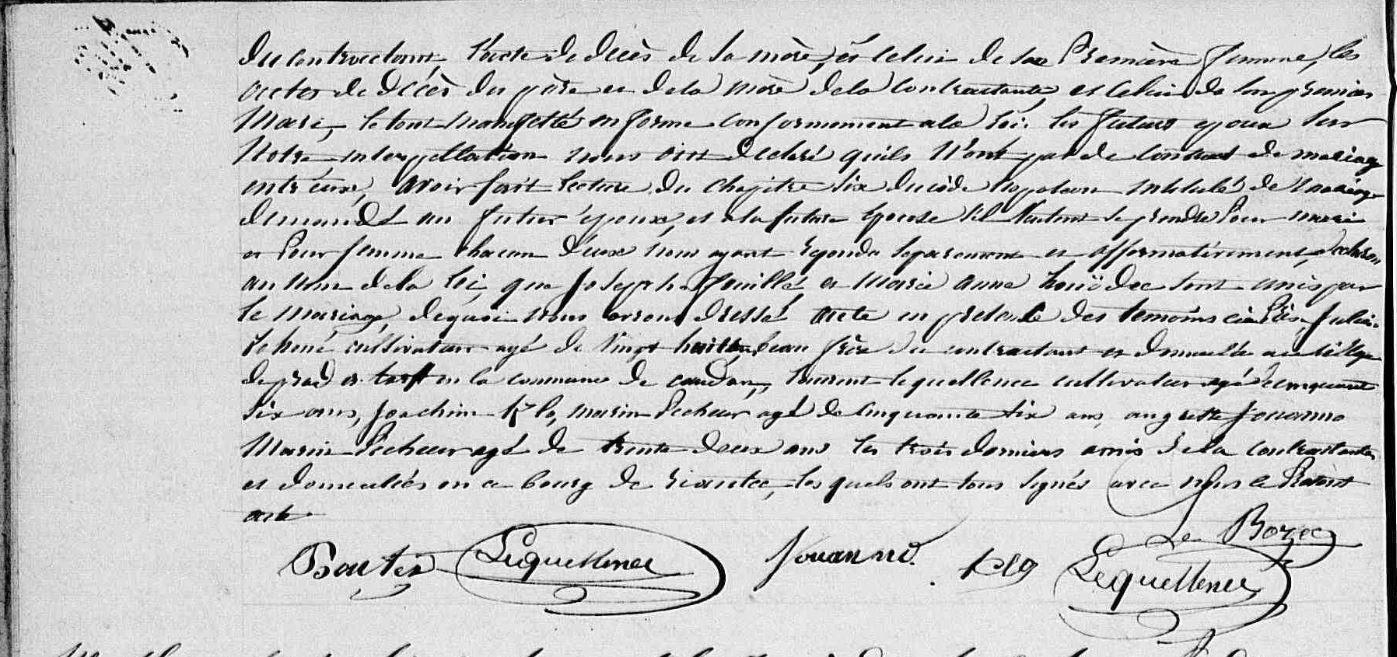 du contractant, l'acte de décès de la mère, et celui de sa Première femme, les
actes de décès du père et de la mère de la Contractante et celui de son premier
Mari, le tout en forme conformement a la loi. les futurs epoux sur
Notre interpellation nous ont declaré qu'ils n'ont pas de contrat de mariage
entr'eux, avoir fait lecture du chapitre six du code napoleon intitulé de mariage
demandé au futur époux, et a la future epouse s'il veulent se prendre Pour mari
et Pour femme chacun d'eux nous ayant repondu separement et affirmativement, declarons
au nom de la loi, que joseph et Marie anne sont unis par
le Mariage, dequoi nous avons dressé acte en presence des temoins
cultivateur agé de Vingt ans frère du contractant et domicilié au village
de en la commune de caudan, lequellenec cultivateur agé de cinquante
six ans, joachim marin Pecheur agé de cinquante six ans, auguste jouanno
Marin Pecheur agé de trente deux ans les trois derniers amis de la contractante
et domiciliés en ce bourg de riantec, les quels ont tous signés avec nous le Présent
acte
Lequellenec Jouanno. Le Bozec
Lequellenec